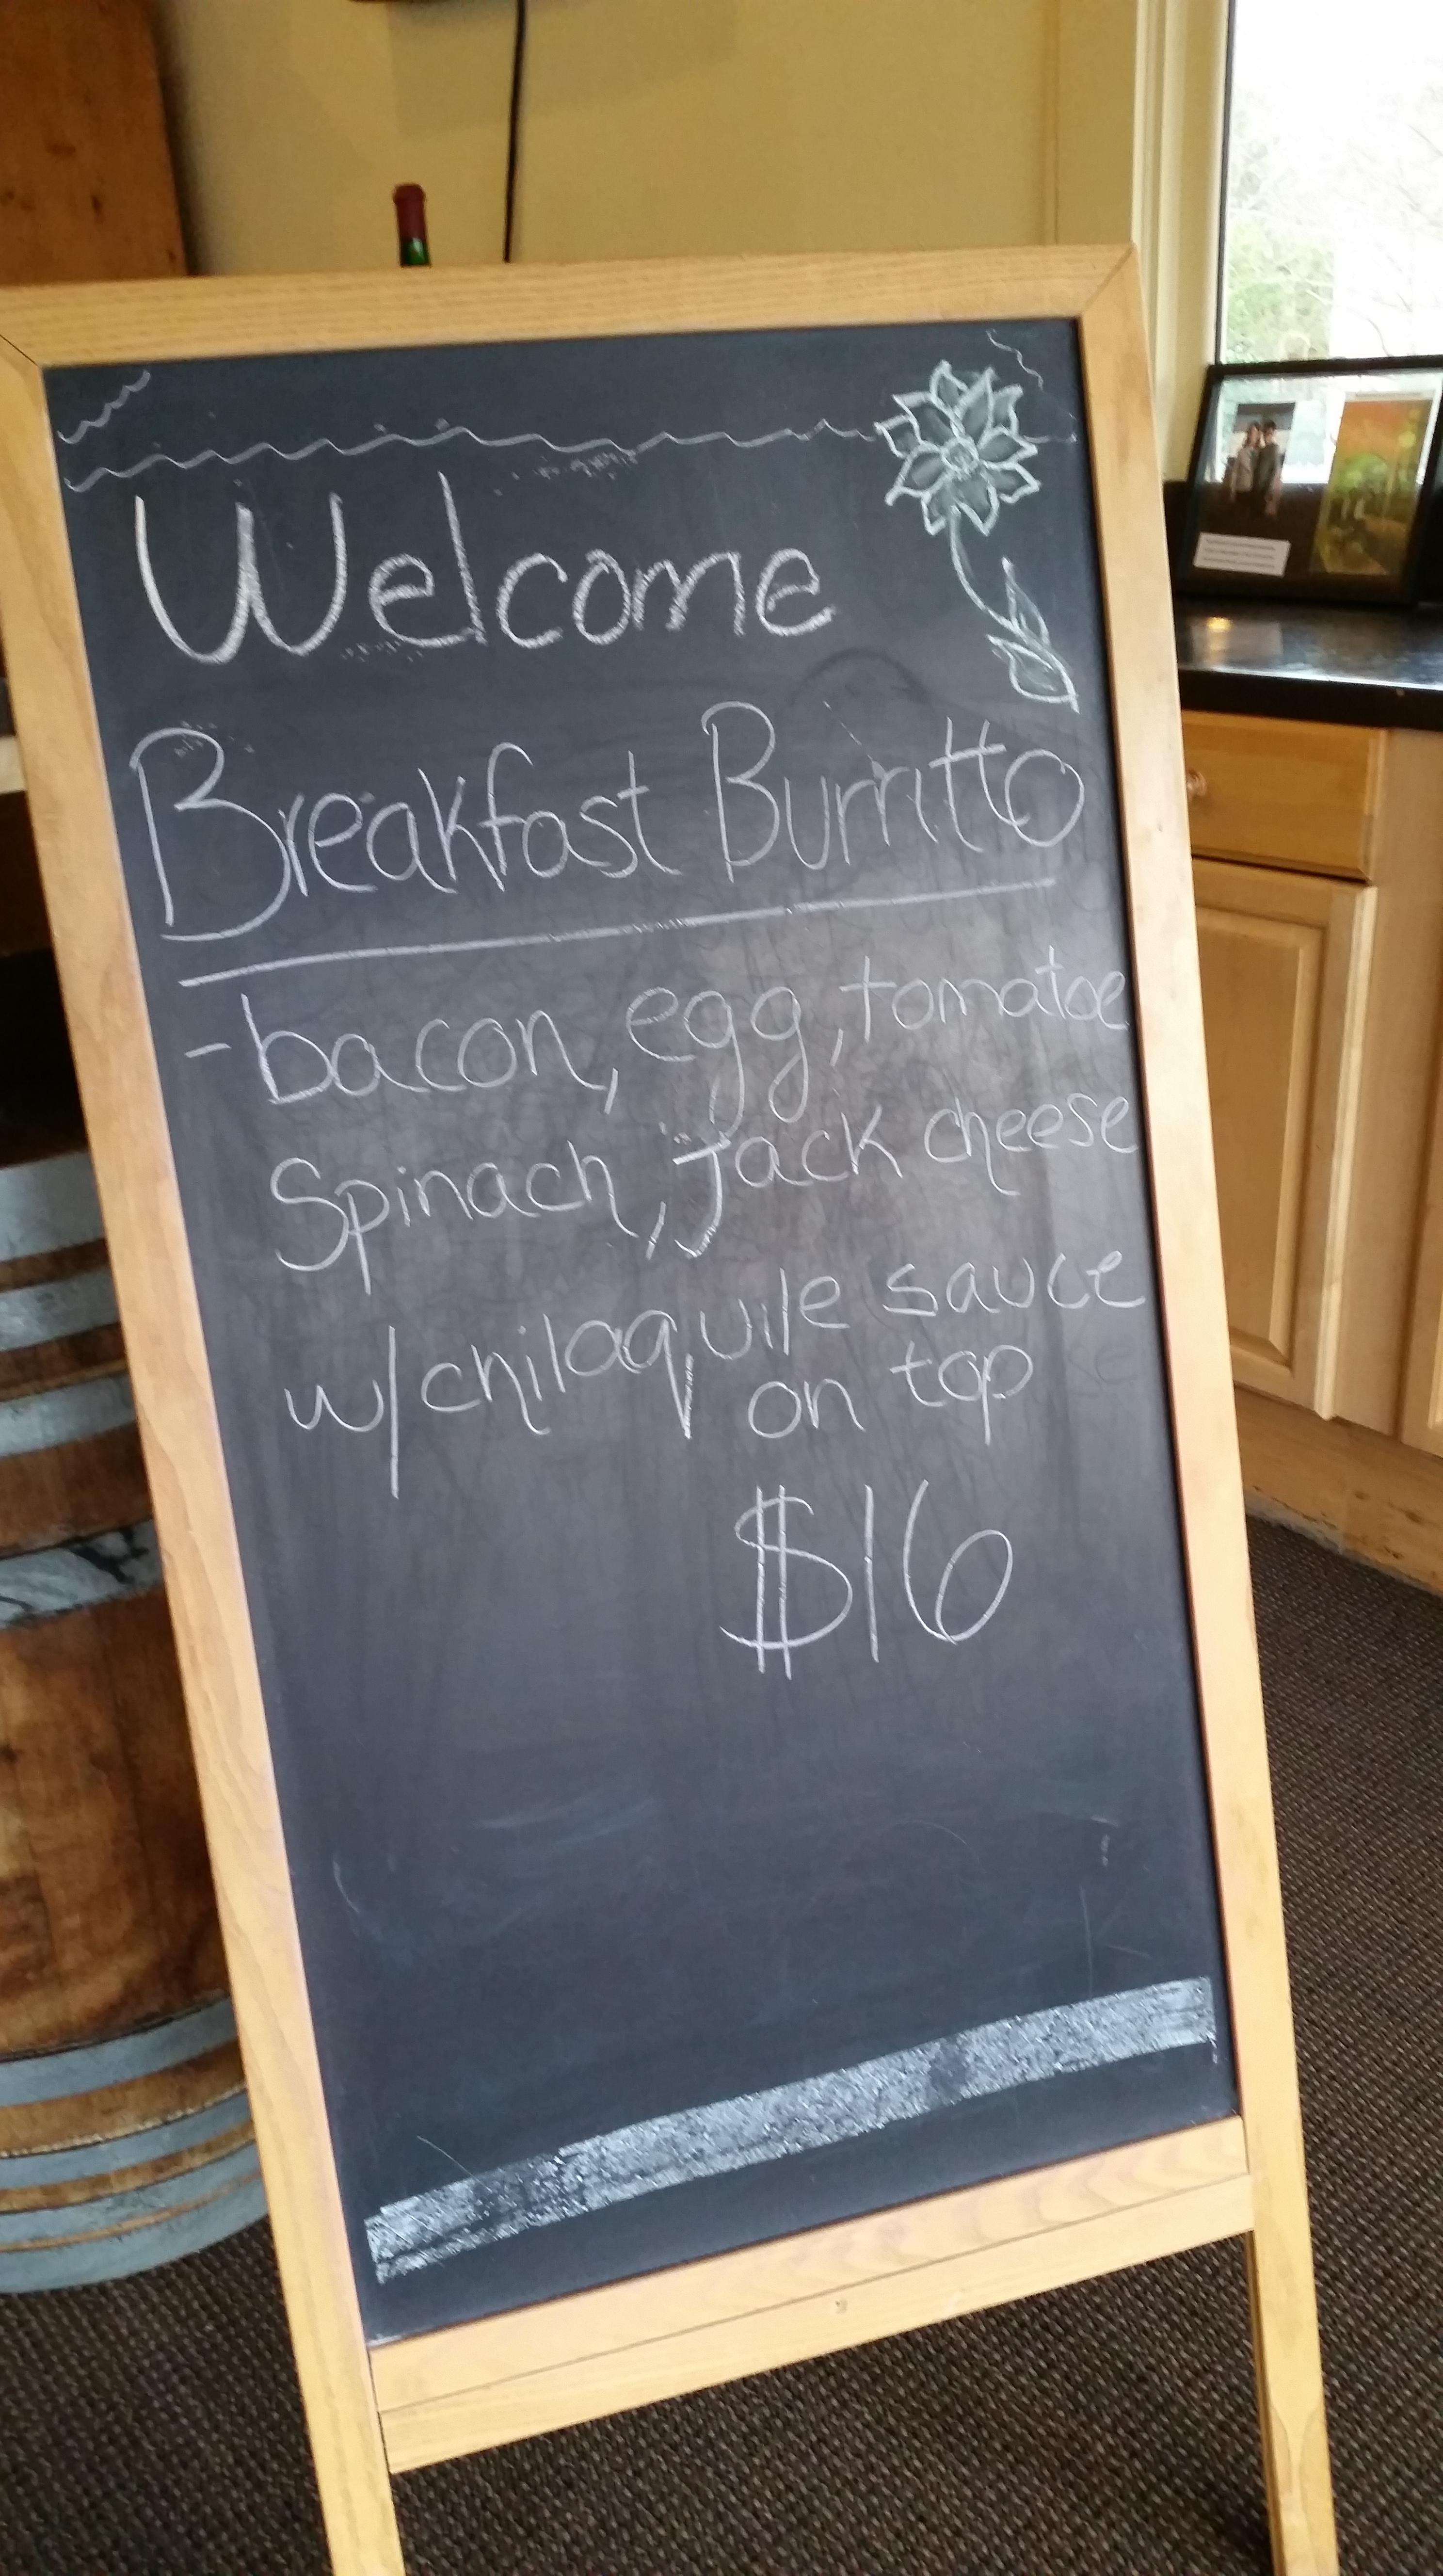 Welcome
Breakfast Burritto
- bacon, egg, tomatoe
Spinach, jack cheese
w/ chilaquile sauce
on top
$16